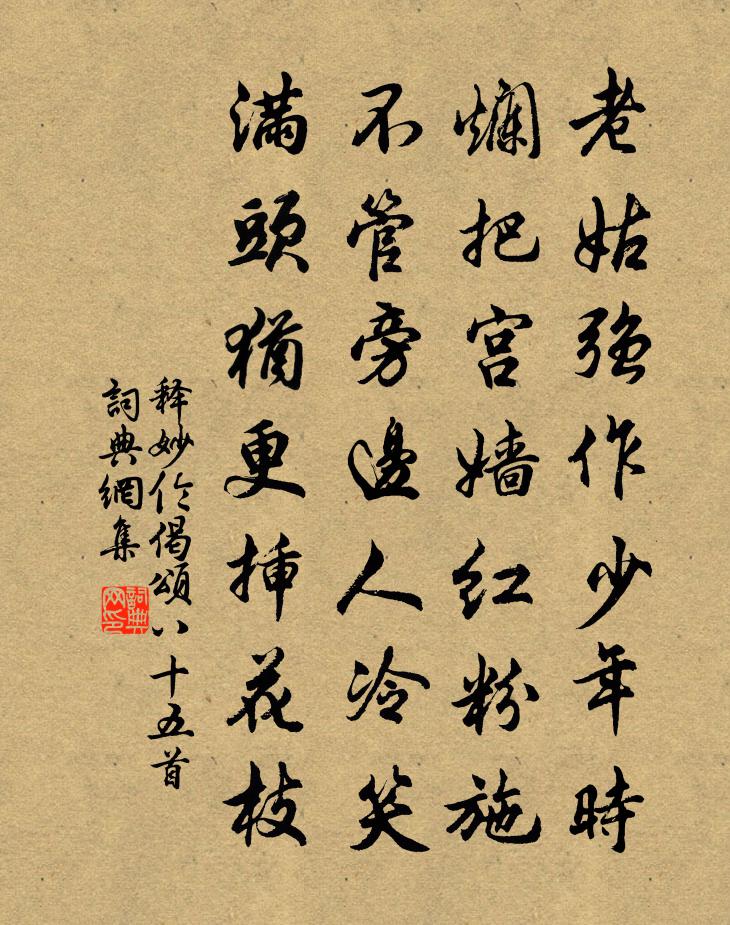 老姑強作少年時
爛把宫嬙红粉施
不管旁邊人冷笑
满頭猶更挿花枝
释妙伦偈頌八十五首
詞典網集
詞典網印